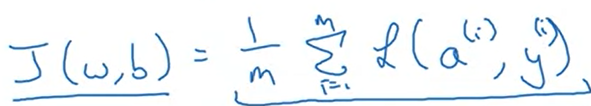 J(w,b) = 1/m ∑_{i=1}^{m} ℒ(a^{(i)}, y^{(i)})